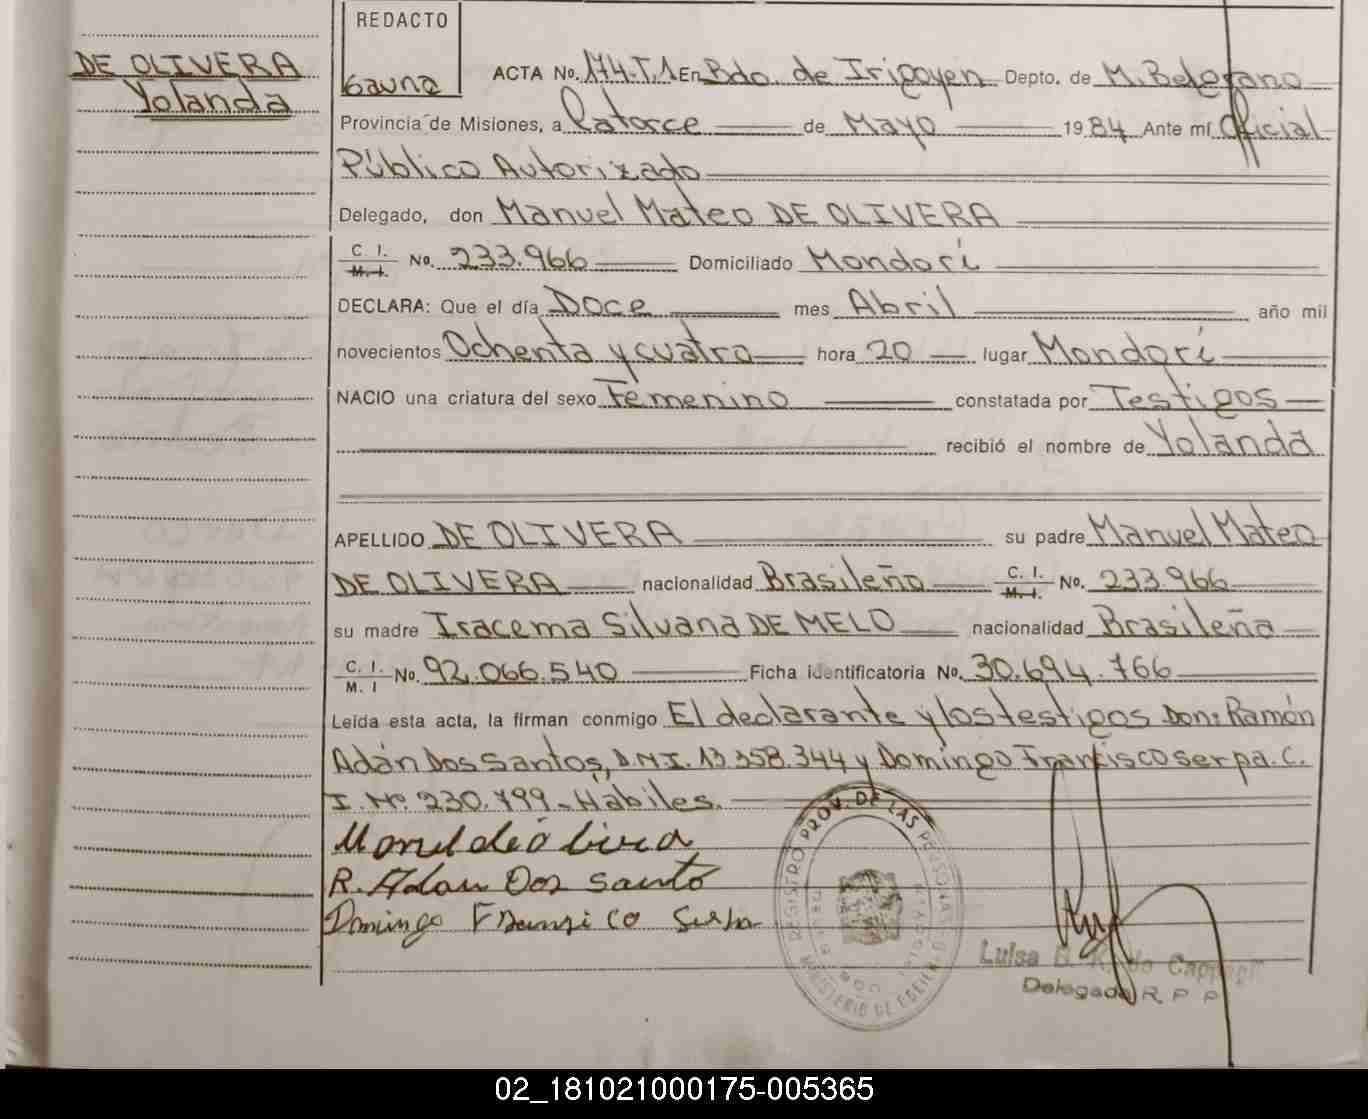 DE OLIVERA
Yolanda
REDACTO
Gauna
ACTA No. 174.T.1 En Bdo. de Irigoyen Depto. de M. Belgrano
Provincia de Misiones, a Catorce de Mayo 1984 Ante mí Oficial
Público Autorizado
Delegado, don Manuel Mateo DE OLIVERA
C. I. M. I. No. 233.966 Domiciliado Mondorí
DECLARA: Que el día Doce mes Abril año mil
novecientos Ochenta y cuatro hora 20 lugar Mondorí
NACIO una criatura del sexo Femenino constatada por Testigos
recibió el nombre de Yolanda
APELLIDO DE OLIVERA su padre Manuel Mateo
DE OLIVERA nacionalidad Brasileño C. I. M. I. No. 233.966
su madre Iracema Silvana DE MELO nacionalidad Brasileña
C. I. M. I No. 92.066.540 Ficha identificatoria No. 30.694.766
Leída esta acta, la firman conmigo El declarante y los testigos Don: Ramón
Adán Dos Santos, D.N.I. 13.358.344 y Domingo Francisco Serpa. C.
I. Nº 230.799. Hábiles.
R. Adan Dos Santo
Domingo Serpa
REGISTRO PROV. DE LAS PERSONAS
MINISTERIO DE
Luisa
Delegada R. P. P.
02_181021000175-005365